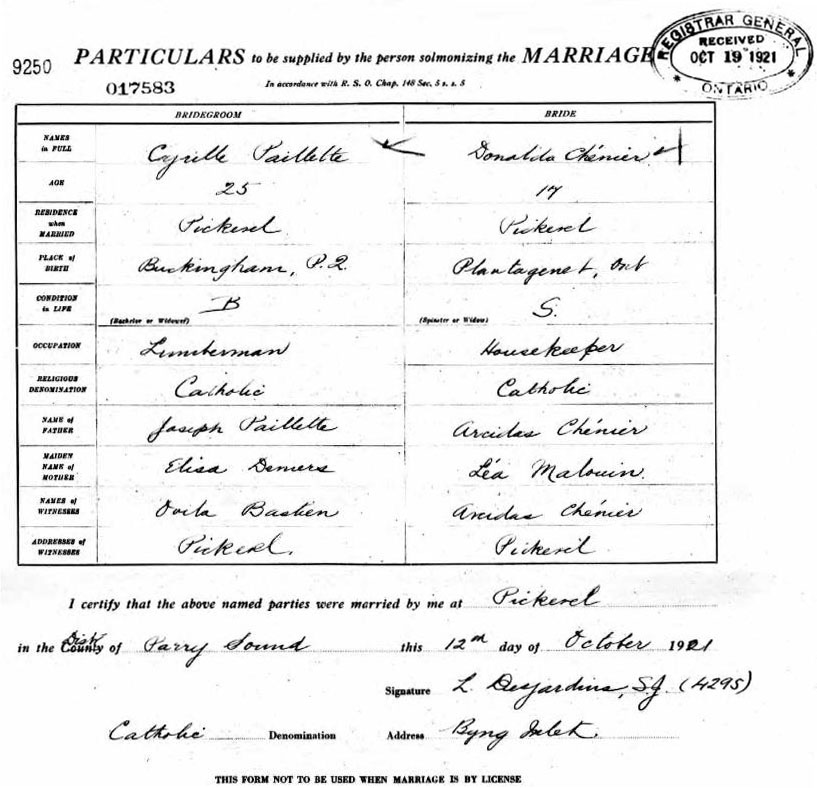 9250
PARTICULARS to be supplied by the person solmonizing the MARRIAGE
REGISTRAR GENERAL
RECEIVED
OCT 19 1921
ONTARIO
017583
In accordance with R. S. O. Chap. 148 Sec. 5 s. s. 5
BRIDEGROOM BRIDE
NAMES in FULL Cyrille Paillette Donalda Chénier
AGE 25 17
RESIDENCE when MARRIED Pickerel Pickerel
PLACE of BIRTH Buckingham, P.Q. Plantagenet, Ont
CONDITION in LIFE B S.
(Bachelor or Widower) (Spinster or Widow)
OCCUPATION Lumberman Housekeeper
RELIGIOUS DENOMINATION Catholic Catholic
NAME of FATHER Joseph Paillette Arcidas Chénier
MAIDEN NAME of MOTHER Elisa Demers Léa Malouin.
NAMES of WITNESSES Ovila Bastien Arcidas Chénier
ADDRESSES of WITNESSES Pickerel. Pickerel
I certify that the above named parties were married by me at Pickerel
in the County Dist of Parry Sound this 12nd day of October 1921
Signature L. Desjardins, S.J. (4295)
Catholic Denomination Address Byng Inlet.
THIS FORM NOT TO BE USED WHEN MARRIAGE IS BY LICENSE